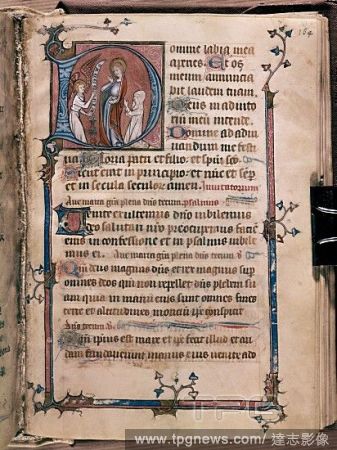 164
omine labia mea
aperies. Et os
meum annuncia
bit laudem tuam.
Deus in adiuto
rium meum intende.
Domine ad adiu
uandum me festi
na. Gloria patri et filio. et spūi sco.
Sicut erat in principio. et nūc et sēp
et in secula seculoꝝ amen. Inuitatorium
Aue maria grā plena dn̄s tecum. psalmus
enite exultemus dn̄o iubilemus
deo salutari nr̄o preocupemus faciē
eius in confessione et in psalmis iubile
mus ei. Aue maria grā plena dn̄s tecum.
Qm̄ deus magnus dn̄s et rex magnus sup
omnes deos qm̄ non repellet dn̄s plebem su
am quia in manu eius sunt omnes fines
terre et altitudines montiū ip̄e conspicit
Dn̄s tecum.
Qm̄ ip̄ius est mare et ip̄e fecit illud et ari
dam fundauerunt manus eius uenite ado
TPG
www.tpgnews.com/ 達志影像